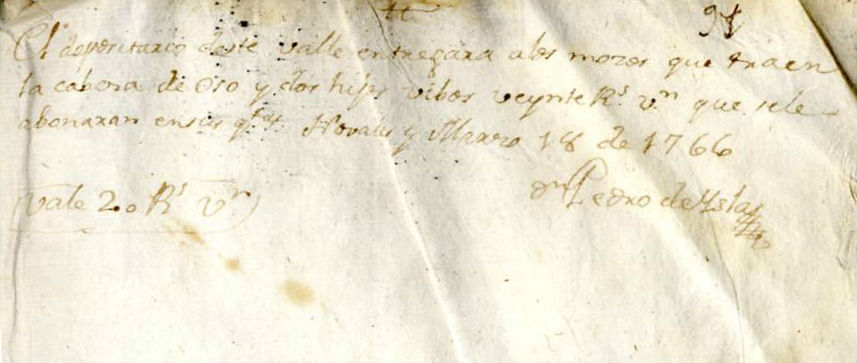 94
El depositario deste valle entregara alos mozos que traen
la cabesa de oso y dos hijos vibos veynte Rs vn que sele
abonaran ensus qtas Novales y Marzo 18 de 1766
Dn Pedro de Yslas
(Vale 20 Rs vn)